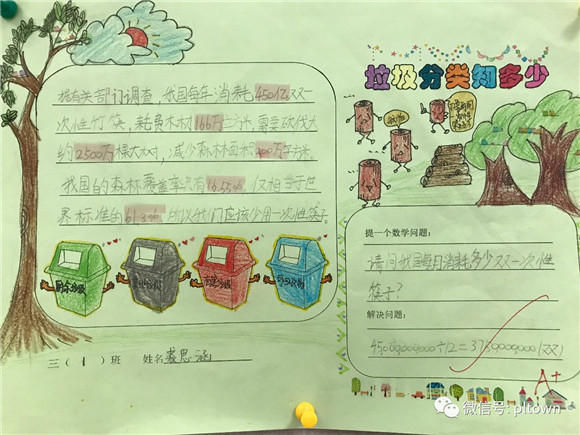 垃圾分类知多少
据有关部门调查,我国每年消耗450亿双一
次性竹筷,耗费木材166万立方米,需要砍伐大
约2500万棵大树,减少森林面积200万平方米。
我国的森林覆盖率只有16.55%,仅相当于世
界标准的61.3%,所以我们应该少用一次性筷子。
厨余垃圾
可回收
三(1)班 姓名 裘思涵
提一个数学问题:
请问我国每月消耗多少双一次性
筷子?
解决问题:
45000000000÷12=3750000000(双)
A+
微信号: pltown